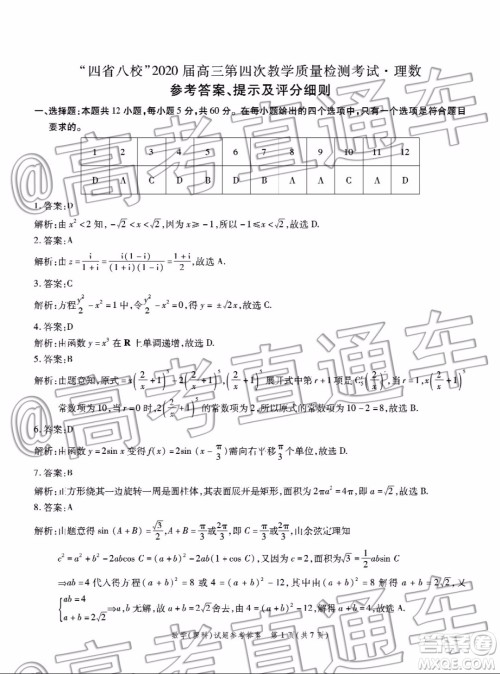 “四省八校”2020届高三第四次教学质量检测考试·理数
参考答案、提示及评分细则
一、选择题：本题共12小题，每小题5分，共60分。在每小题给出的四个选项中，只有一个选项是符合题目
要求的。
1 2 3 4 5 6 7 8 9 10 11 12
D A C D B D B A C A D
1. 答案：D
解析：由x²<2知，-√2<x<√2，因为x≥-1，所以-1≤x<√2，故选D.
2. 答案：A
解析：由z=i/(1+i)=i(1-i)/((1+i)(1-i))=(1+i)/2，故选A.
3. 答案：C
解析：方程y²/2-x²=1中，令y²/2-x²=0，得y=±√2x，故选C.
4. 答案：D
解析：由函数y=x³在R上单调递增，故选D.
5. 答案：B
解析：由题意知，原式=x(2/x+1)⁵-2(2/x+1)⁵，(2/x+1)⁵展开式中第r+1项是
常数项为10，当r=0时，2(2/x+1)⁵的常数项为2，所以原式的常数项为10-2=8，故选B.
6. 答案：D
解析：由函数y=2sin x变得f(x)=2sin(x-π/3)需向右平移π/3个单位，故选D.
7. 答案：B
解析：正方形绕其一边旋转一周是圆柱体，其侧面展开是矩形，面积为2πa²=4π，即a=√2，故选B.
8. 答案：A
解析：由题意得sin(A+B)=√3/2，A+B=π/3或2π/3，即C=2π/3或π/3，由余弦定理知
c²=a²+b²-2abcos C=(a+b)²-2ab(1+cos C)，又面积为√3=1/2absin C
⇒ab=4代入得方程(a+b)²=8或(a+b)²-12=4，即(a+b)²=8，a+b=2√2，
{ab=4 a+b=2√2 ⇒a，b无解，故a+b=2√2舍去，故a+b=4，故选A.
数学(理科)试题参考答案 第1页(共7页)
高考直通车
高考直通车
高考直通车